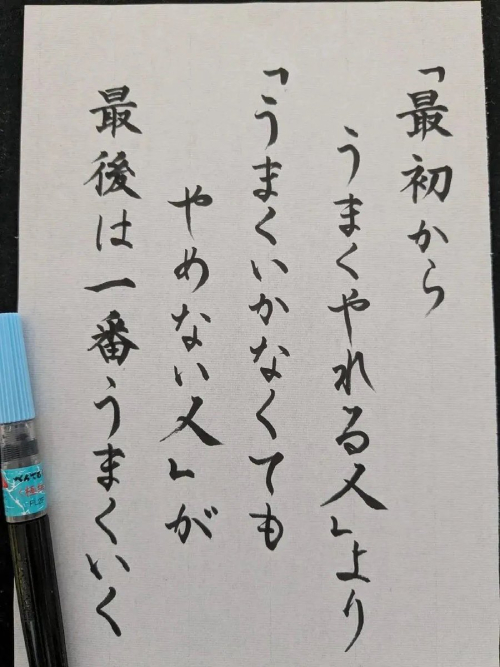 「最初から
うまくやれる人」より
「うまくいかなくても
やめない人」が
最後は一番うまくいく
ぺんてる